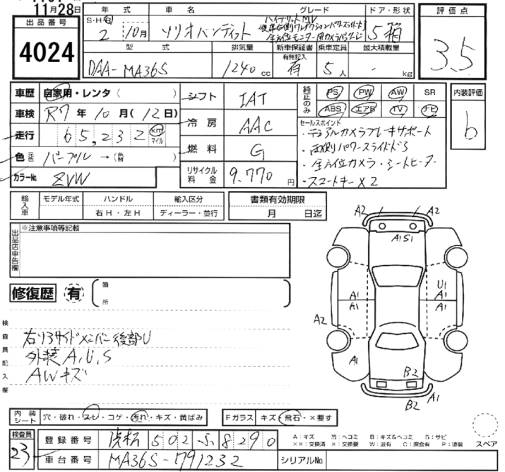 11月28日
出品番号 4024
年式 車名 グレード ドア・形状
S・H・R 2 10月 ソリオバンディット ハイブリッドMV 5 箱
型式 排気量 新車保証書 乗車定員 最大積載量
DAA-MA36S 1240 cc 有 5人 - kg
評価点
3.5
車歴 自家用・レンタ( )
車検 R7年10月(12日)
走行 65,232 Km マイル
色 パープル→(替)
カラーNo ZVW
シフト IAT
冷房 AAC
燃料 G
リサイクル料金 9,770円
純正のみ PS PW AW SR
ABS エアB TV ナビ
セールスポイント
・デュアルカメラブレーキサポート
・両側パワースライドDS
・全方位カメラ・シートヒーター
・スマートキー×2
内装評価
b
輸入車 モデル年式 ハンドル 輸入区分
右H・左H ディーラー・並行
書類有効期限
月 日迄
出品店申告欄
※注意事項等記載
修復歴 有
箇所
検査員記入欄
右リヤサイドメンバー後部U
外装A,U,S
AWキズ
A2 A2
A1S1
A2 A1 A1 U1 A1
A2 A1
B2
B2
A2
内装シート 穴・破れ・スレ・コゲ・汚れ・キズ・黄ばみ
Fガラス キズ・飛石・×要す
スペア
検査員 23
登録番号 浜松 502 ふ 8290
車台番号 MA36S-791232
シリアルNo
A:キズ U:ヘコミ B:キズ&ヘコミ S:サビ
××:交換済 ×:要交換 W:波有 C:腐食有 P:塗装